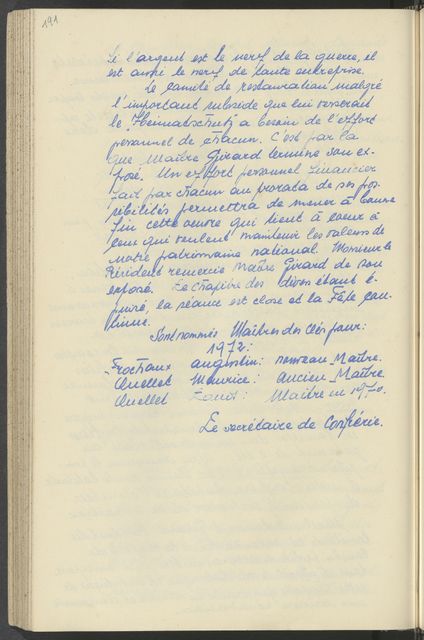 191
Si l'argent est le nerf de la guerre, il
est aussi le nerf de toute entreprise.
Le comité de restauration malgré
l'important subside que lui verserait
le "Heimatschutz" a besoin de l'effort
personnel de chacun. C'est par là
que Maître Girard termine son ex-
posé. Un effort personnel financier
fait par chacun au prorata de ses pos-
sibilités permettra de mener à bonne
fin cette œuvre qui tient à cœur à
ceux qui veulent maintenir les valeurs de
notre patrimoine national. Monsieur le
Président remercie Maître Girard de son
exposé. Le chapitre des divers étant é-
puisé, la séance est close et la Fête con-
tinue.
Sont nommés Maîtres des clés pour:
1972:
Frochaux Augustin: nouveau Maître.
Quellet Maurice: ancien Maître.
Quellet : Maître en 1970.
Le secrétaire de Confrérie.